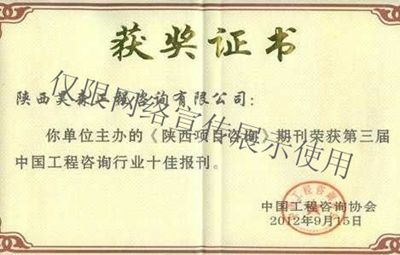 获奖证书
陕西昊森工程咨询有限公司：
你单位主办的《陕西项目咨询》期刊荣获第三届
中国工程咨询行业十佳报刊。
中国工程咨询协会
2012年9月15日
仅限网络宣传展示使用